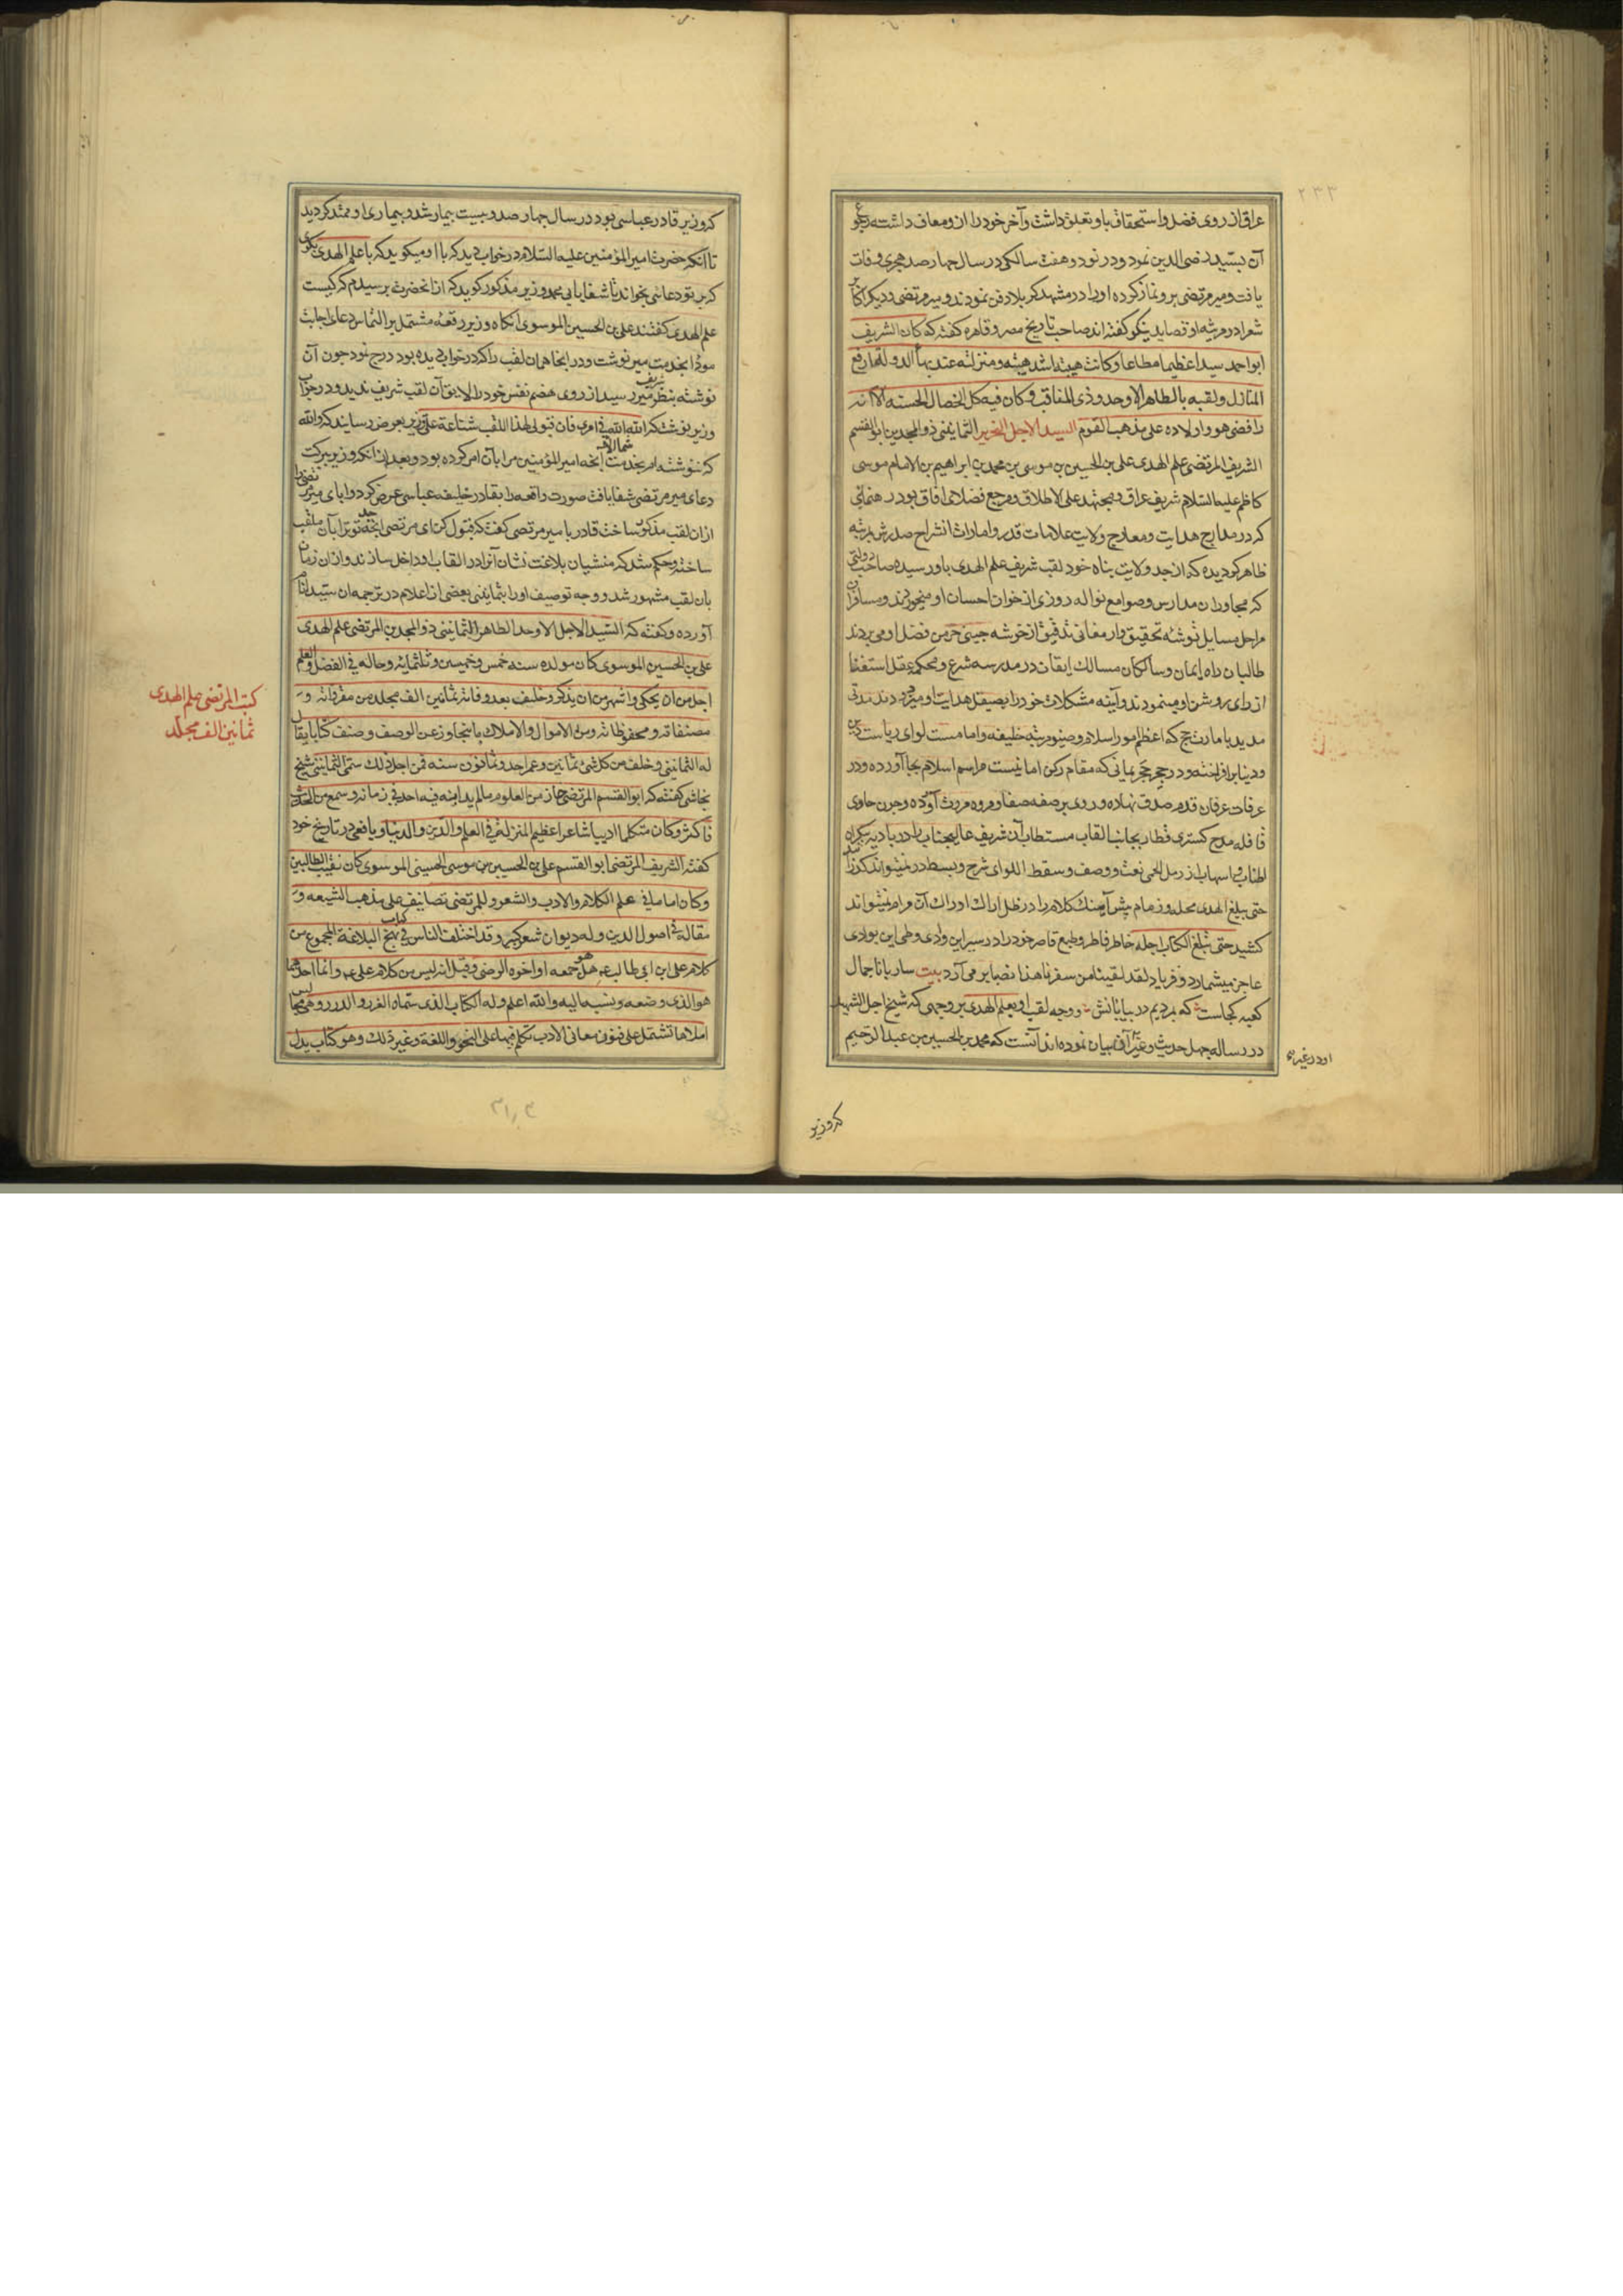 ۲۳۳
عراق از روی فضل و استحقاق باو تعلق داشت و آخر خود را از آن معاف داشته رجوع
آن بسید رضی الدین نمود و در نود و هفت سالکی در سال چهار صد هجری وفات
یافت و میر مرتضی برو نماز کرده او را در مشهد کربلا دفن نمودند و میر مرتضی و دیکر اکابر
شعرا در مرثیه او قصاید نیکو کفته اند صاحب تاریخ مصر و قاهره کفته که کان الشریف
ابو احمد سیدا عظیما مطاعا و کانت هیبته اشد هیبته و منزلته عند بهاء الدوله ارفع
المنازل و لقبه بالطاهر الاوحد و ذی المناقب و کان فیه کل الخصال الحسنه الا انه
رافضی هو و اولاده علی مذهب القوم السید الاجل النحریر الثمانینی ذو المجدین ابو القسم
الشریف المرتضی علم الهدی علی بن الحسین بن موسی بن محمد بن ابراهیم بن الامام موسی
کاظم علیه السلام شریف عراق و مجتهد علی الاطلاق و مرجع فضلای افاق بود رهنمائی
که در مدارج هدایت و معارج ولایت علامات قدر و امارات انشراح صدرش بمرتبه
ظاهر کردیده که از جد ولایت پناه خود لقب شریف علم الهدی باو رسیده صاحب دولتی
که مجاوران مدارس و صوامع نواله روزی از خوان احسان او میخوردند و مسافران
مراحل مسایل توشه تحقیق و ارمغانی تدقیق از خوشه چینی خرمن فضل او می بردند
طالبان راه ایمان و سالکان مسالک ایقان در مدرسه شرع و محکمه عقل استفتا
از رای روشن او مینمودند و آینه مشکلات خود را بصیقل هدایت او میزدودند مدتی
مدید بامارت حج که اعظم امور اسلام و صنو مرتبه خلیفه و امامست لوای ریاست دین
و دنیا برافراخته و در حجر حجر یمانی که مقام رکن امانیست مراسم اسلام بجا آورده و در
عرفات عرفان قدم صدق نهاده و روی بر صفه صفا و مروه مروت آورده و چون حاوی
قافله مدح کستری قطار بجانب القاب مستطاب آن شریف عالیجناب را در بادیه بیکرانه
اطناب و اسهاب از رمل الحمی نعت و وصف و سقط اللوای شرح و بسط در نمیتواند کذرانید
حتی یبلغ الهدی محله و زمام پیش آهنک کلام را در ظل اراک ادراک آن مرام نمیتواند
کشید حتی یبلغ الکتاب اجله خاطر فاطر و طبع قاصر خود را در سیر این وادی و طی این بوادی
عاجز میشمارد و فریاد لقد لقینا من سفرنا هذا نصبا بر می آرد بیت ساربانا جمال
کعبه کجاست که بمردیم در بیابانش و وجه لقب او بعلم الهدی بر وجهی که شیخ اجل الشهید
در رساله چهل حدیث و غیر آن بیان نموده اند آنست که محمد بن الحسین بن عبد الرحیم
که وزیر
که وزیر قادر عباسی بود در سال چهار صد و بیست بیمار شد و بیماری او ممتد کردید
تا آنکه حضرت امیر المؤمنین علیه السلام در خواب دید که با او میکوید که با علم الهدی بکوی
که بر تو دعائی بخواند تا شفا یابی محمد وزیر مذکور کوید که از آنحضرت پرسیدم که کیست
علم الهدی کفتند علی بن الحسین الموسوی آنکاه وزیر رقعه مشتمل بر التماس دعای اجابت
مودا بخدمت میر نوشت و در آنجا همان لقب را که در خواب دیده بود درج نمود چون آن
نوشته بنظر شریف میر رسید از روی هضم نفس خود را لایق آن لقب شریف ندید و در جواب
وزیر نوشت که الله الله فی امری فان قبولی لهذا اللقب شناعة علی وزیر بعرض رسانید که والله
که ننوشته ام بخدمت شما الا آنچه امیر المؤمنین مرا بآن امر کرده بود و بعد از آنکه وزیر ببرکت
دعای میر مرتضی شفا یافت صورت واقعه را بقادر خلیفه عباسی عرض کرد و ابای میر مرتضی را
از آن لقب مذکور ساخت قادر با میر مرتضی کفت که قبول کن ای مرتضی آنچه جد تو ترا بآن ملقب
ساخته و حکم شد که منشیان بلاغت نشان آنرا در القاب او داخل سازند و از آن زمان
بان لقب مشهور شد و وجه توصیف او را بثمانینی بعضی از اعلام در ترجمه ان سید انام
آورده و کفته که السید الاجل الاوحد الطاهر الثمانینی ذو المجدین المرتضی علم الهدی
علی بن الحسین الموسوی کان مولده سنه خمس و خمسین و ثلثمائه و حاله فی الفضل و العلم
اجل من ان یحکی و اشهر من ان یذکر و خلف بعد وفاته ثمانین الف مجلد من مقرواته و
مصنفاته و محفوظاته و من الاموال و الاملاک ما یتجاوز عن الوصف و صنف کتابا یقال
له الثمانین و خلف من کل شئ ثمانین و عمر احد و ثمانون سنه فمن اجل ذلک سمی الثمانینی شیخ
نجاشی کفته که ابو القسم المرتضی حاز من العلوم ما لم یدانه فیه احد فی زمانه و سمع من الحدیث
فاکثر و کان متکلما ادیبا شاعرا عظیم المنزله فی العلم و الدین و الدنیا و یافعی در تاریخ خود
کفته الشریف المرتضی ابو القسم علی بن الحسین بن موسی الحسینی الموسوی کان نقیب الطالبین
و کان اماما فی علم الکلام و الادب و الشعر و للمرتضی تصانیف علی مذهب الشیعه و
مقاله فی اصول الدین و له دیوان شعر کبیر و قد اختلف الناس فی کتاب نهج البلاغة المجموع من
کلام علی ابن ابی طالب ع هل هو جمعه او اخوه الرضی و قیل انه لیس من کلام علی ع و انما احدهما
هو الذی وضعه و نسبه الیه و الله اعلم و له الکتاب الذی سماه الغرر و الدرر و هی مجالس
املاها تشتمل علی فنون معانی الادب تکلم فیها علی النحو و اللغة و غیر ذلک و هو کتاب یدل
کتب المرتضی علم الهدی
ثمانین الف مجلد